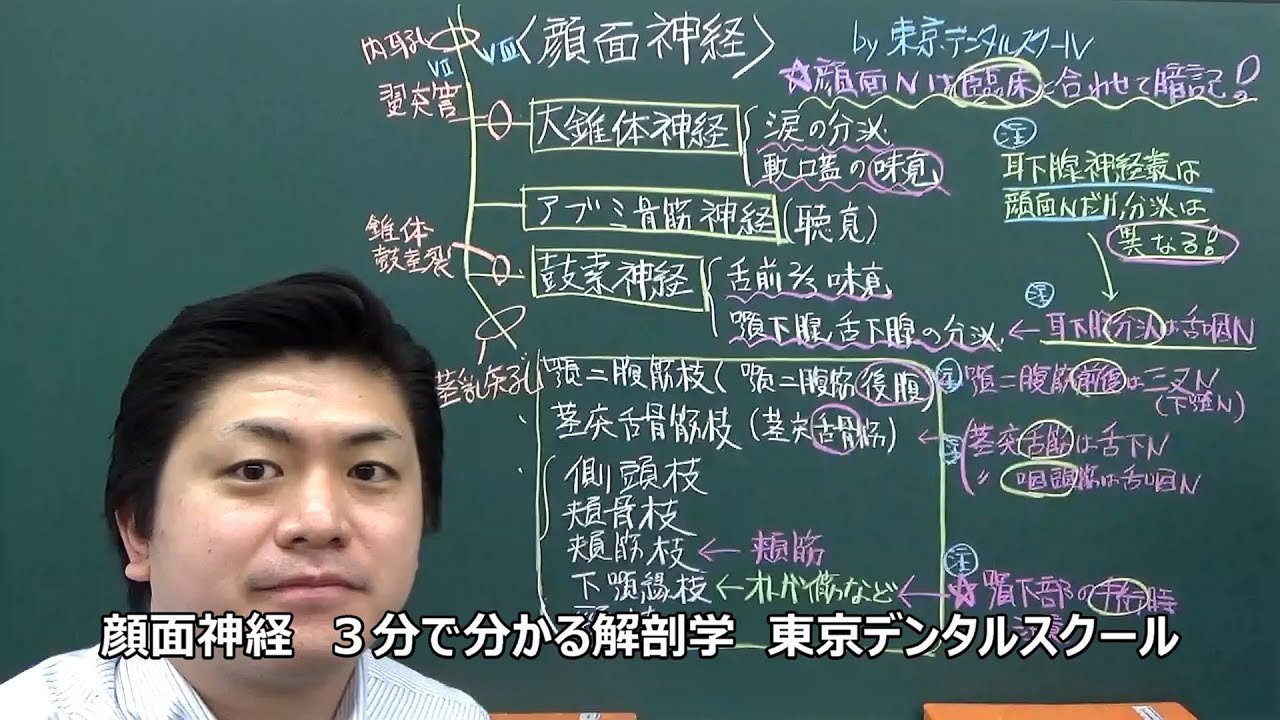 内耳孔
VII
VIII
〈顔面神経〉
by 東京デンタルスクール
☆顔面Nは臨床に合わせて暗記!
翼突管
大錐体神経
涙の分泌
軟口蓋の味覚
アブミ骨筋神経(聴覚)
錐体
鼓室裂
鼓索神経
舌前2/3味覚
顎下腺,舌下腺の分泌
注
耳下腺神経叢は
顔面Nだけど,分泌は
異なる!
注
←耳下腺分泌は舌咽N
茎乳突孔
顎二腹筋枝(顎二腹筋後腹)
注 顎二腹筋前腹は三叉N
(下顎N)
茎突舌骨筋枝(茎突舌骨筋)
←注 茎突舌筋は舌下N
〃 咽頭筋は舌咽N
側頭枝
頬骨枝
頬筋枝←頬筋
下顎縁枝←オトガイ筋など←☆顎下部の手術時
注
顔面神経 3分で分かる解剖学 東京デンタルスクール